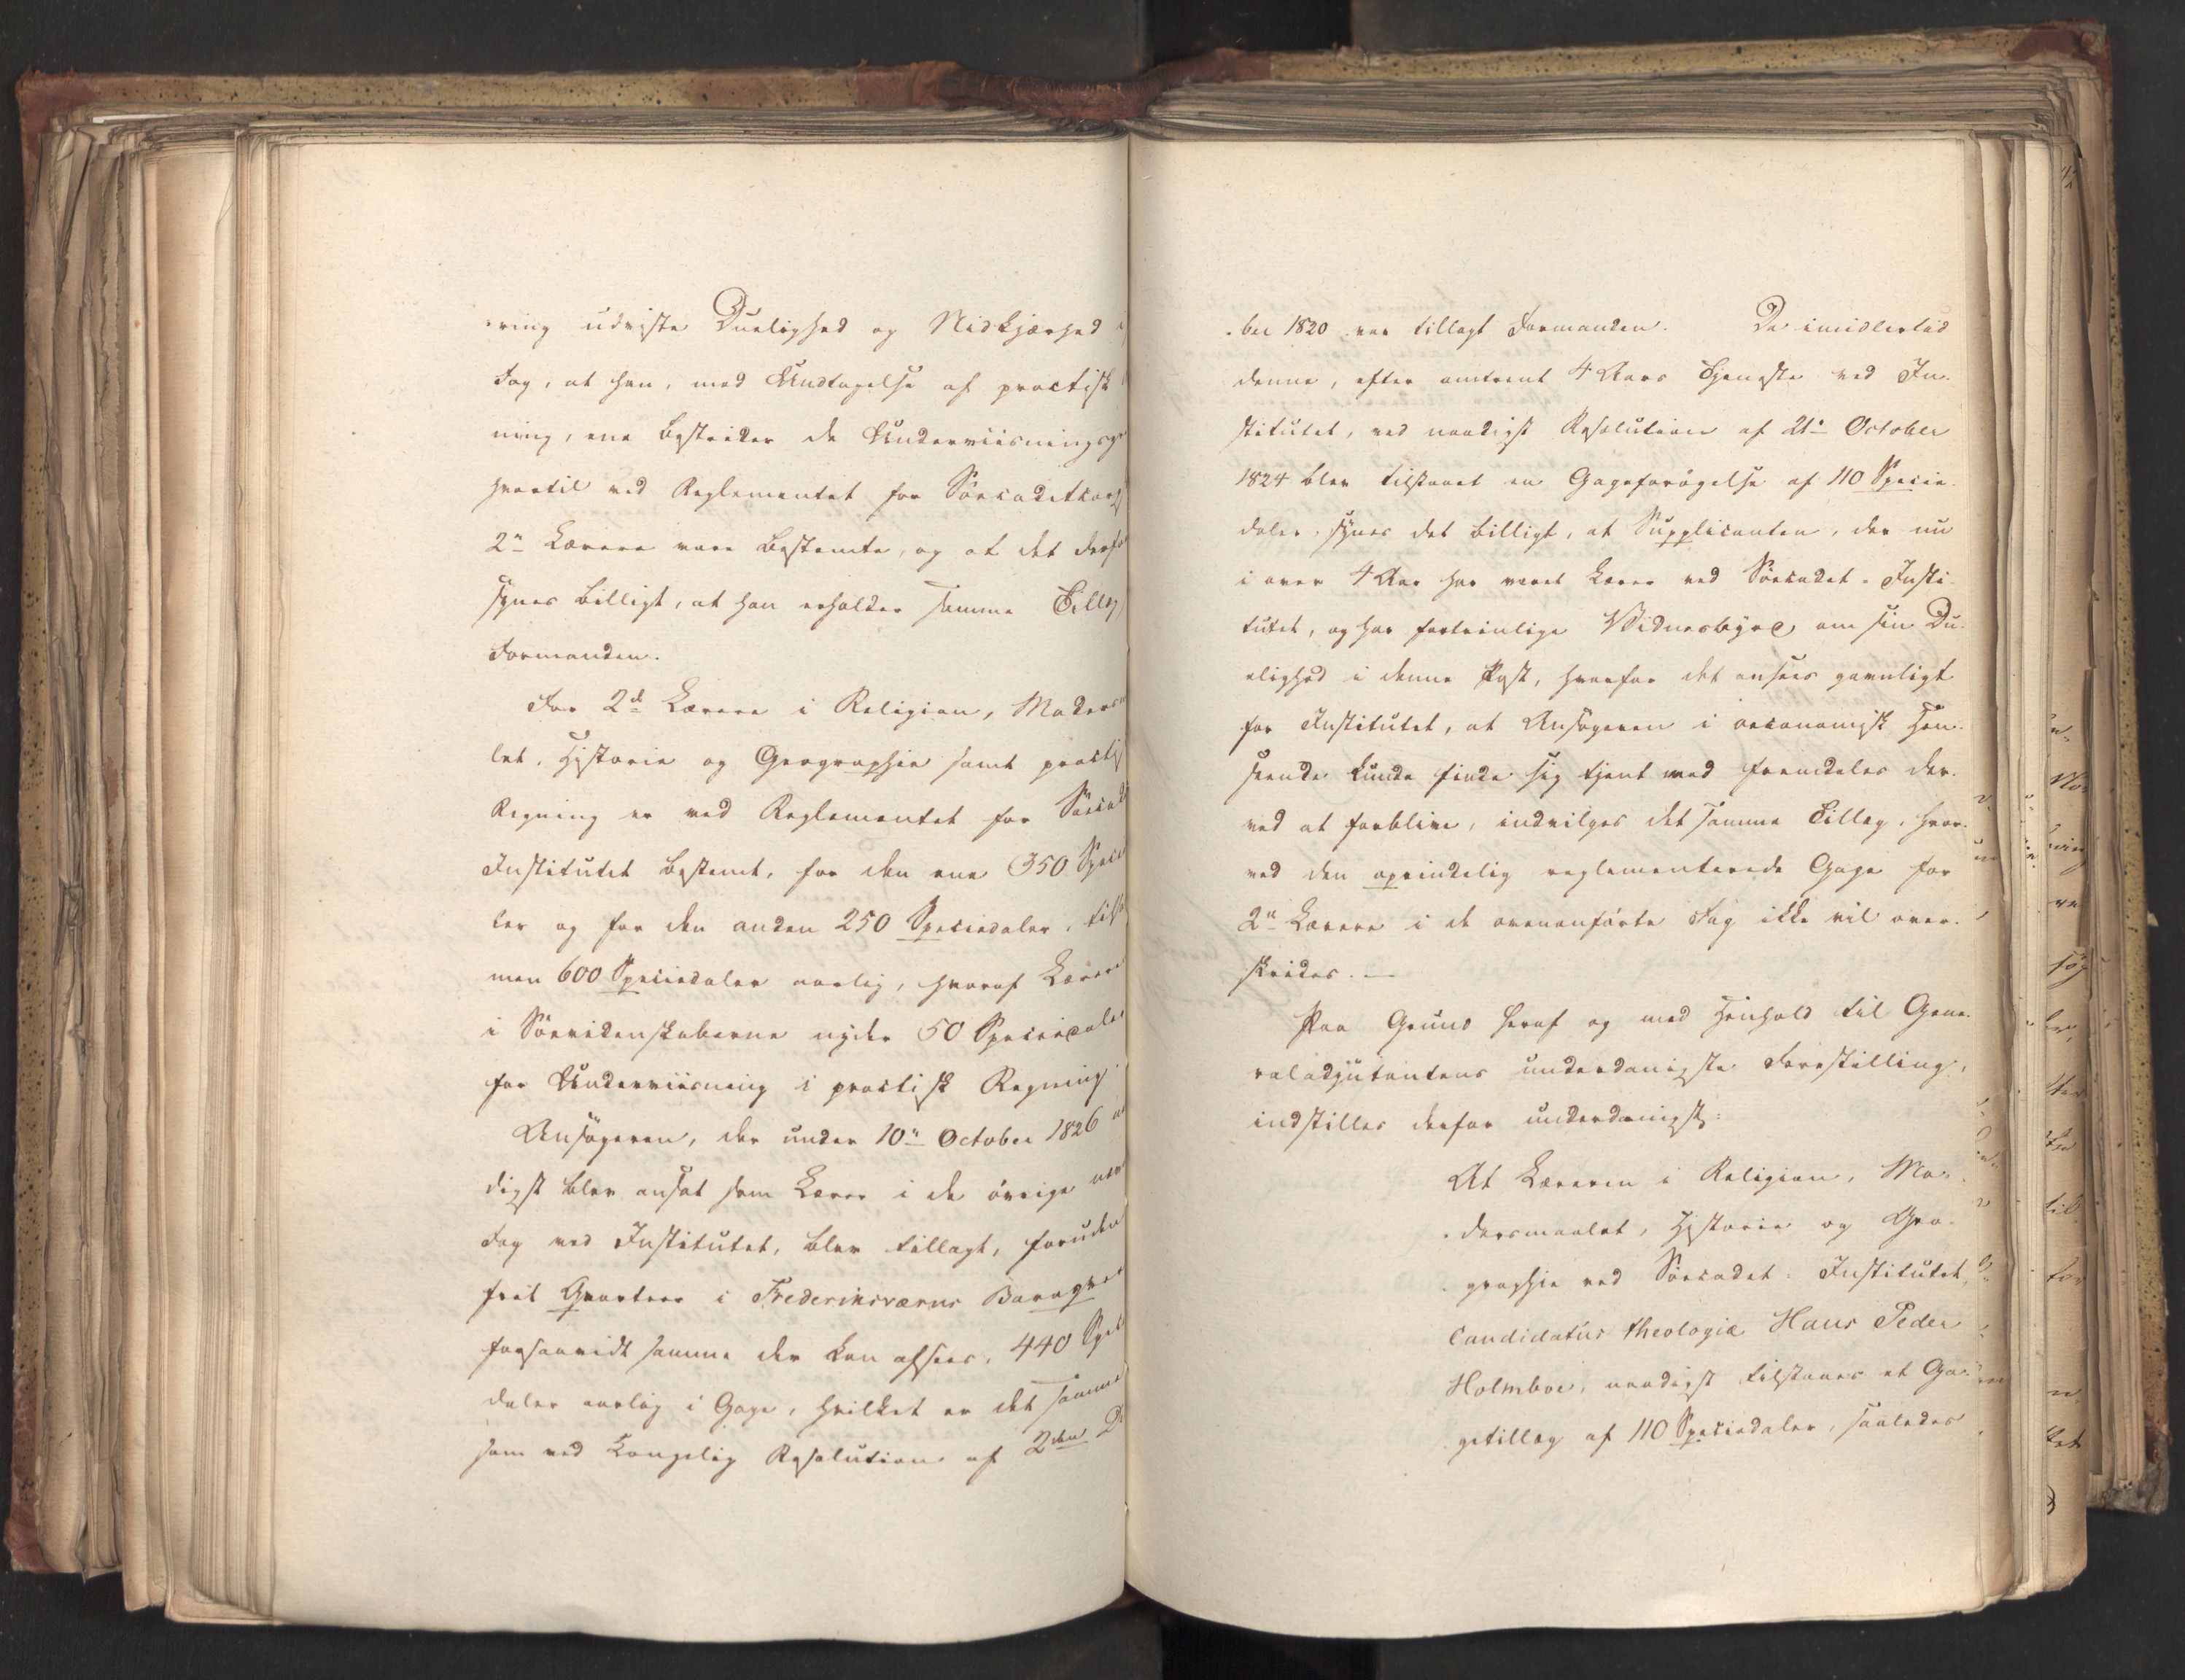 -ring udviste Duelighed og Nidkjærhed i
Fag, at han, med Undtagelse af practisk
ning, ene bestrider de Underviisningsge
hvortil ved Reglementet for Søecadetcorps
2de Lærere vare bestemte, og at det derfor
synes billigt, at han erholder samme Tillæg
Formanden.
For 2de Lærere i Religion, Moders
let, Historie og Geographie samt practis
Regning er ved Reglementet for Søecad
Institutet bestemt, for den ene 350 Speci
ler og for den anden 250 Speciedaler, tils
men 600 Speciedaler aarlig, hvoraf Lærere
i Søevidenskaberne nyder 50 Speciedaler
for Underviisning i practisk Regning.
Ansøgeren, der under 10de October 1826 n
digst blev ansat som Lærer i de øvrige næv
Fag ved Institutet, blev tillagt, foruden
frit Qvarteer i Frederiksværns Baraqver
forsaavidt samme der kan afsees, 440 Spec
daler aarlig i Gage, hvilket er det samme
som ved Kongelig Resolution af 2den D
-ber 1820 var tillagt Formanden. Da imidlertid
denne, efter omtrent 4 Aars Tjeneste ved In-
stitutet, ved naadigst Resolution af 21de October
1824 blev tilstaaet en Gageforøgelse af 110 Specie-
daler, synes det billigt, at Supplicanten, der nu
i over 4 Aar har været Lærer ved Søecadet-Insti-
tutet, og har fortrinlige Vidnesbyrd om sin Du-
elighed i denne Post, hvorfor det ansees gavnligt
for Institutet, at Ansøgeren i oeconomisk Hen-
seende kunde finde sig tjent med fremdeles der-
ved at forblive, indvilges det samme Tillæg, hvor-
ved den oprindelig reglementerede Gage for
2de Lærere i de ovenanførte Fag ikke vil over-
skrides. —
Paa Grund heraf og med Henhold til Gene-
raladjutantens underdanigste Forestilling,
indstilles derfor underdanigst:
At Læreren i Religion, Mo-
-dersmaalet, Historie og Geo-
-graphie ved Søecadet-Institutet,
Candidatus theologiæ Hans Peder
Holmboe, naadigst tilstaaes et Ga-
getillæg af 110 Speciedaler, saaledes